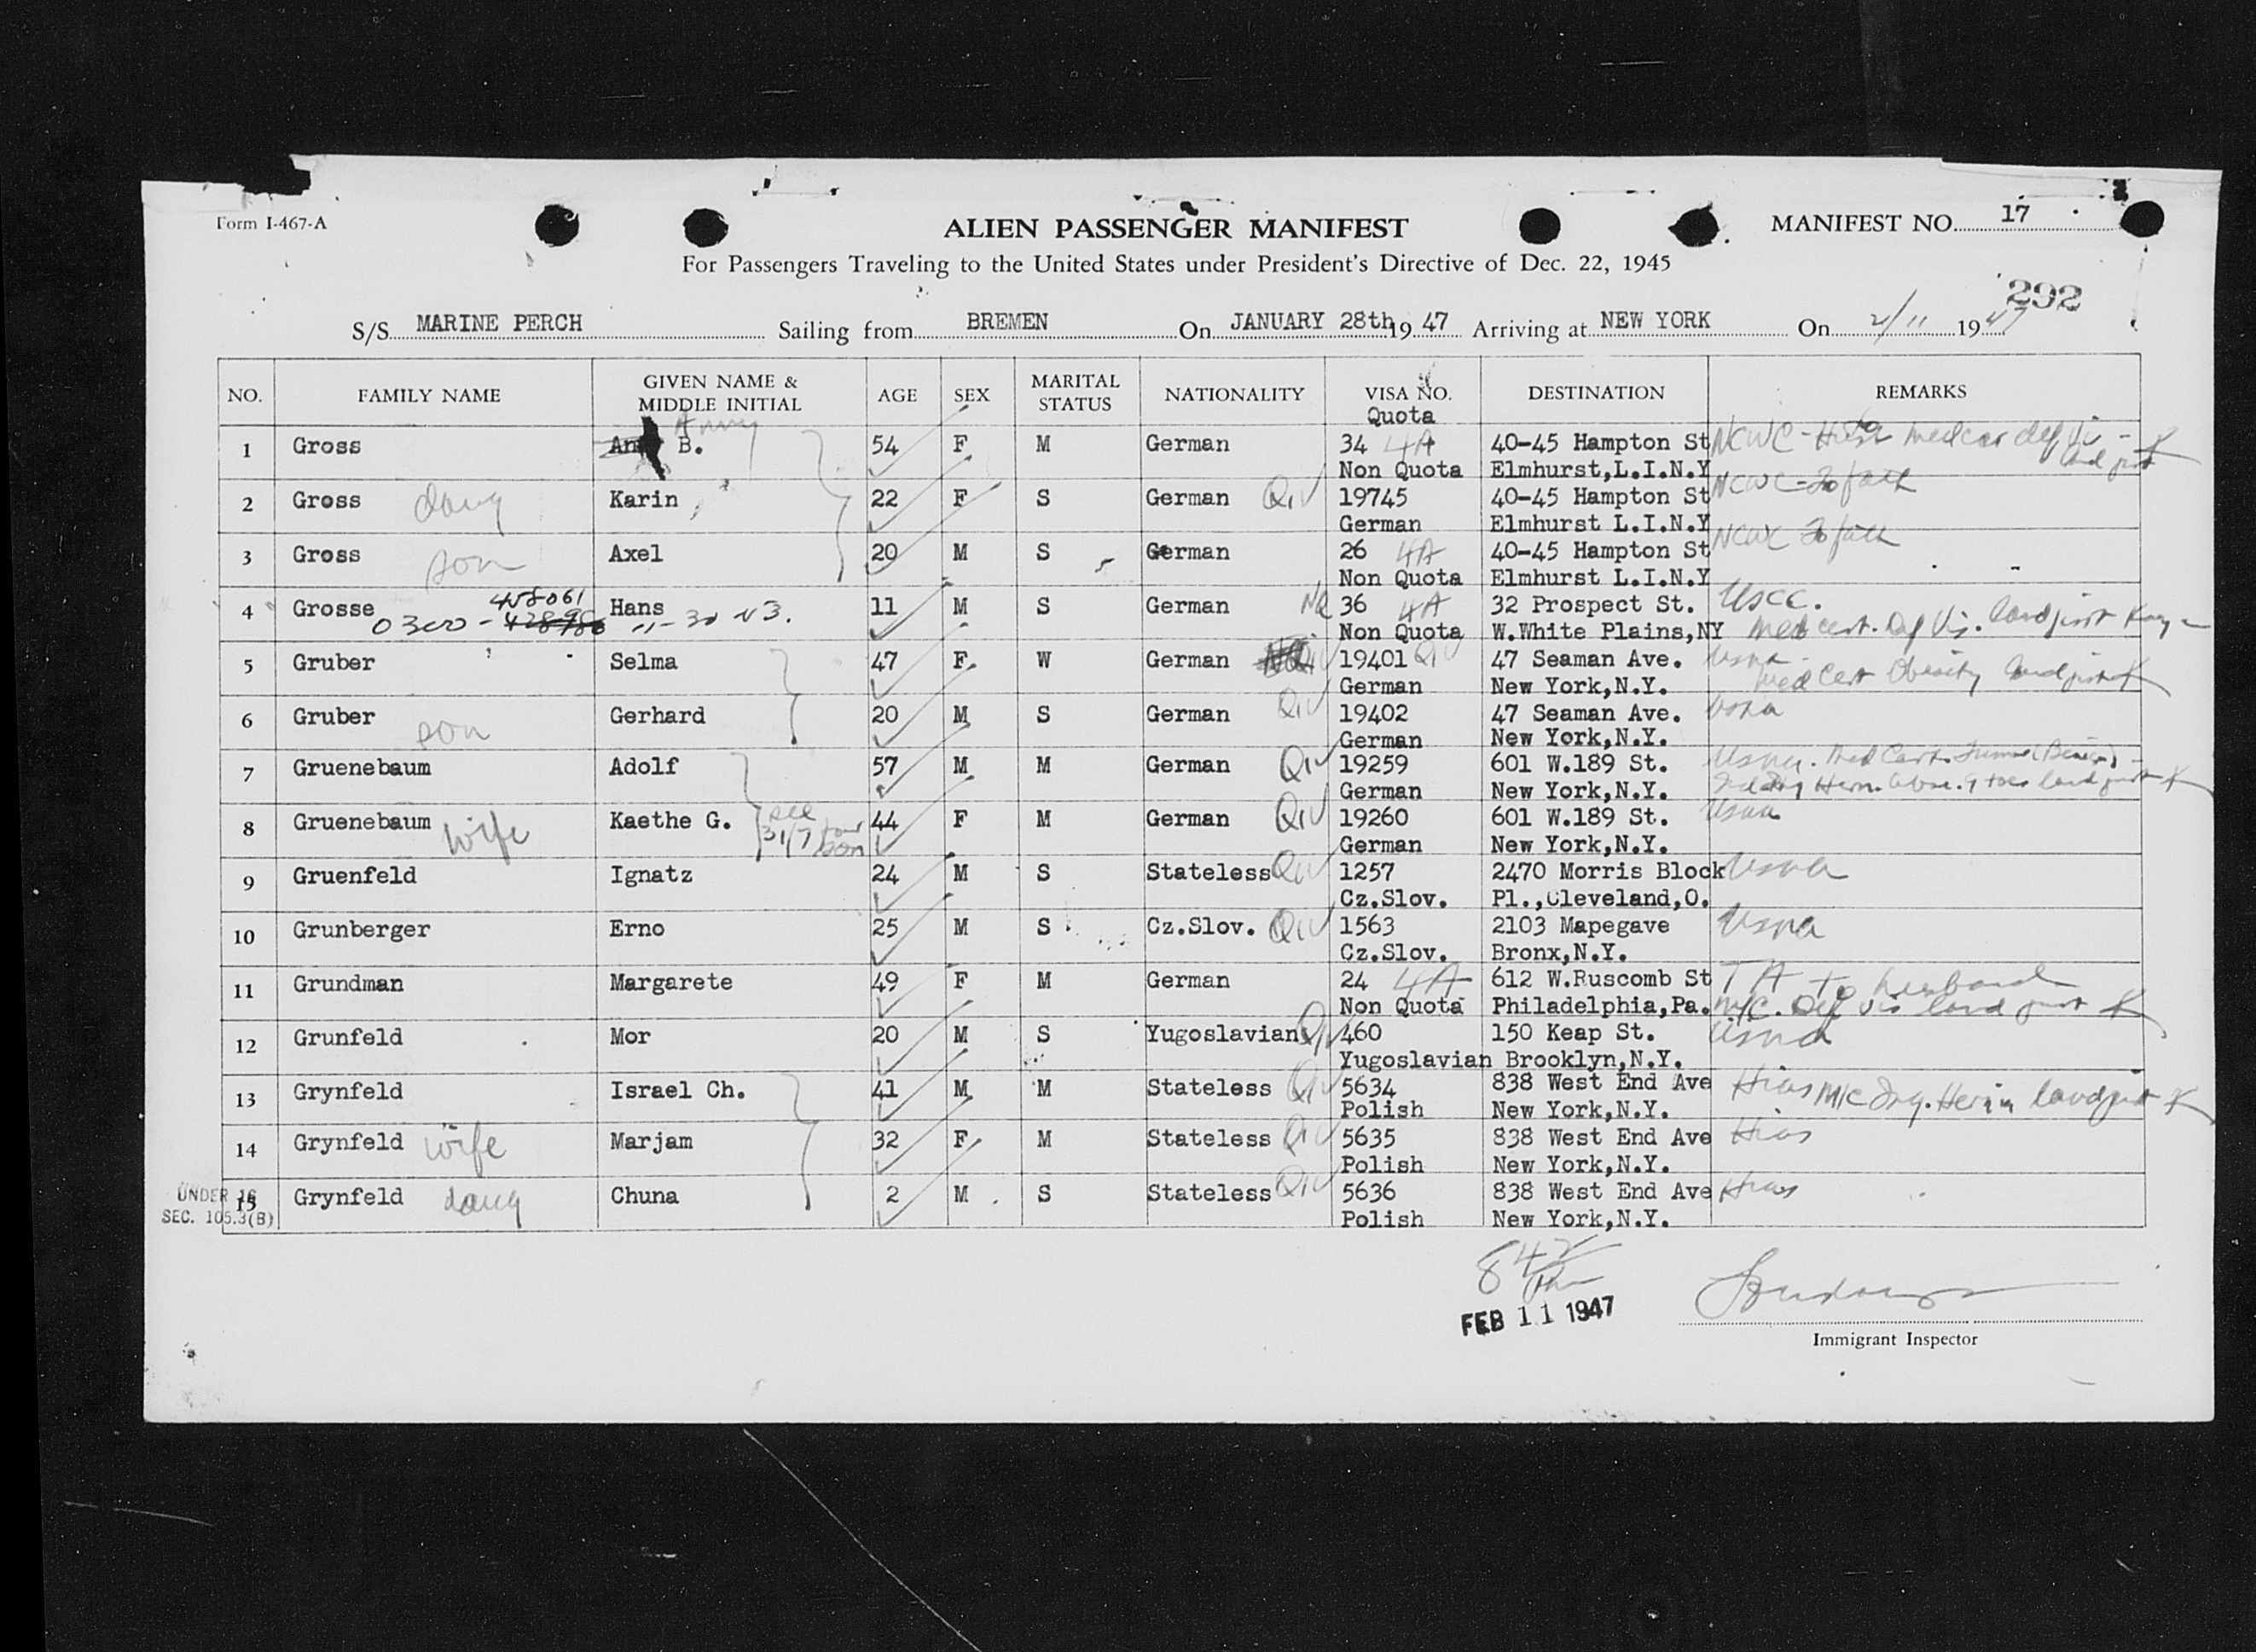 Form I-467-A
ALIEN PASSENGER MANIFEST
MANIFEST NO. 17
For Passengers Traveling to the United States under President's Directive of Dec. 22, 1945
292
S/S MARINE PERCH Sailing from BREMEN On JANUARY 28th 19 47 Arriving at NEW YORK On 2/11 19 47
NO. FAMILY NAME GIVEN NAME & MIDDLE INITIAL AGE SEX MARITAL STATUS NATIONALITY VISA NO. DESTINATION REMARKS
Quota
1 Gross B. Anny 54 F M German 34 4A 40-45 Hampton St NCWC
Non Quota Elmhurst,L.I.N.Y
2 Gross daug Karin 22 F S German QIV 19745 40-45 Hampton St NCWC - To fath
German Elmhurst L.I.N.Y
3 Gross son Axel 20 M S German 26 4A 40-45 Hampton St NCWC To fath
Non Quota Elmhurst L.I.N.Y
4 Grosse Hans 11 M S German NQ 36 4A 32 Prospect St. USCC.
458061
0300 - 11-30 Non Quota W.White Plains,NY Med cert. Def Vis. land just
5 Gruber Selma 47 F W German 19401 QIV 47 Seaman Ave. Usna
German New York,N.Y. Med Cert Obesity land just
6 Gruber son Gerhard 20 M S German QIV 19402 47 Seaman Ave. Usna
German New York,N.Y.
7 Gruenebaum Adolf 57 M M German QIV 19259 601 W.189 St. Usna. Med Cert.
German New York,N.Y.
8 Gruenebaum wife Kaethe G. see 31/7 for son 44 F M German QIV 19260 601 W.189 St. Usna
German New York,N.Y.
9 Gruenfeld Ignatz 24 M S Stateless QIV 1257 2470 Morris Block Usna
Cz.Slov. Pl.,Cleveland,O.
10 Grunberger Erno 25 M S Cz.Slov. QIV 1563 2103 Mapegave Usna
Cz.Slov. Bronx,N.Y.
11 Grundman Margarete 49 F M German 24 4A 612 W.Ruscomb St TA to husband
Non Quota Philadelphia,Pa. M/C. Def vis land just
12 Grunfeld Mor 20 M S Yugoslavian QIV 460 150 Keap St. Usna
Yugoslavian Brooklyn,N.Y.
13 Grynfeld Israel Ch. 41 M M Stateless QIV 5634 838 West End Ave Hias M/C Ing. Hernia land just
Polish New York,N.Y.
14 Grynfeld wife Marjam 32 F M Stateless QIV 5635 838 West End Ave Hias
Polish New York,N.Y.
UNDER 16
15 Grynfeld daug Chuna 2 M S Stateless QIV 5636 838 West End Ave Hias
SEC. 105.3(B) Polish New York,N.Y.
842
FEB 11 1947
Immigrant Inspector